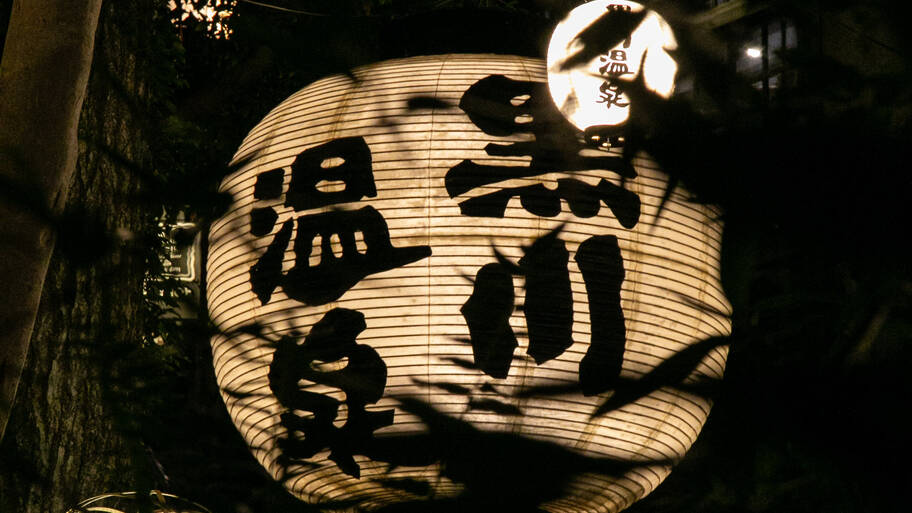 黒川
温泉
川温泉